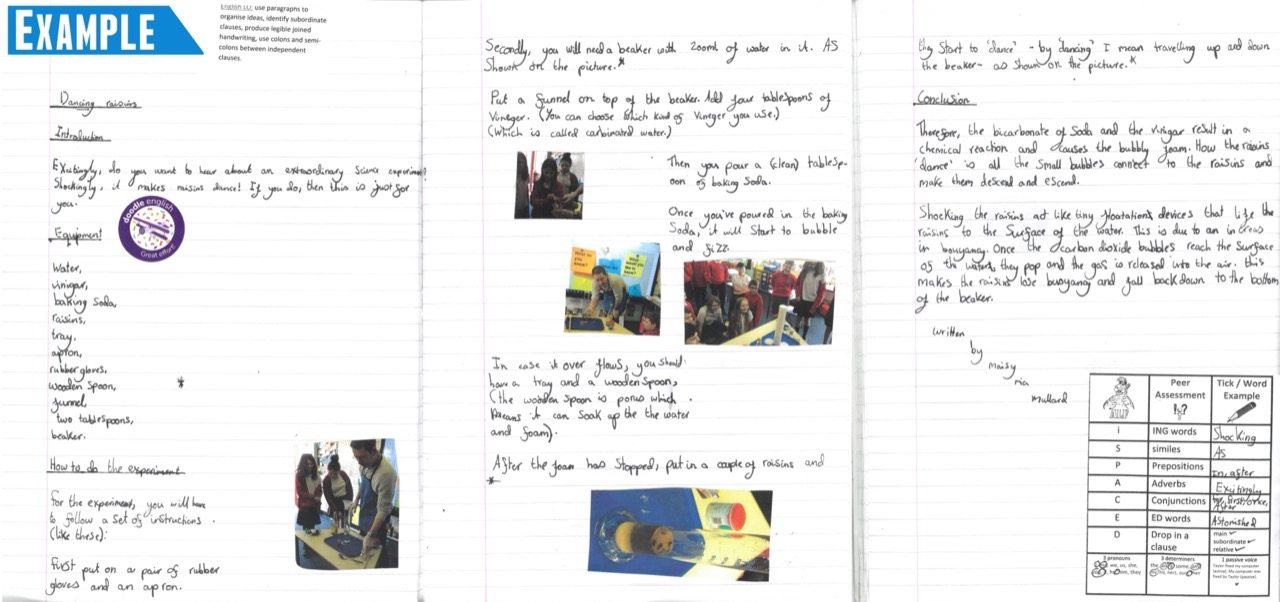 EXAMPLE
English LO: use paragraphs to
organise ideas, identify subordinate
clauses, produce legible joined
handwriting, use colons and semi-
colons between independent
clauses.
Dancing raisins
Introduction
Exitingly, do you want to hear about an extraordinary science experiment?
Shockingly, it makes raisins dance! If you do, then this is just for
you.
doodle english
Great effort
Equipment
Water,
vinigar,
baking Soda,
raisins,
tray,
apron,
rubber gloves,
wooden Spoon,
*
funnel,
two tablespoons,
beaker.
How to do the experiment
For the experiment, you will have
to follow a set of instructions.
(like these):
First put on a pair of rubber
gloves and an apron.
Secondly, you will need a beaker with 200ml of water in it. AS
Shown on the picture.*
Put a funnel on top of the beaker. Add four tablespoons of
Vineger. (You can choose which kind of Vineger you use.)
(Which is called carbinated water.)
Then you pour a (clean) tablesp-
oon of baking Soda.
Once you've poured in the baking
Soda, it will Start to bubble
and fizz.
In case it over flows, you should:
have a tray and a wooden Spoon,
(the wooden spoon is porus which
means it can soak up the the water
and foam).
After the foam has stopped, put in a couple of raisins and
*
thy Start to 'dance' - by 'dancing' I mean travelling up and down
the beaker- as shown on the picture.*
Conclusion
Therefore, the bicarbonate of Soda and the vinigar result in a
chemical reaction and causes the bubbly foam. How the raisins
'dance' is all the Small bubbles connect to the raisins and
make them descend and escend.
Shocking the raisins act like tiny floatation devices that life the
raisins to the Surface of the water. This is due to an increas
in bouyancy. Once the carbon dioxide bubbles reach the Surface
of the water, they pop and the gas is released into the air. this
makes the raisins lose buoyancy and fall back down to the bottom
of the beaker.
Written
by
Maisy
ria
Mullard
Peer Assessment
Tick / Word Example
i ING words Shocking
S similes As
P Prepositions In, after
A Adverbs Exitingly
C Conjunctions
E ED words Astonished
D Drop in a clause main subordinate relative
3 pronouns
3 determiners
1 passive voice